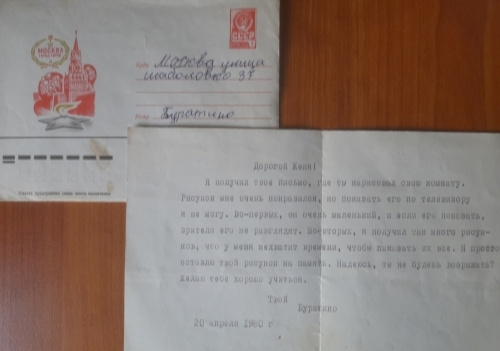 МОСКВА
СССР
Куда Москва улица
шаболовка 37
Кому Буратино
Дорогой Женя!
Я получил твое письмо, где ты нарисовал свою комнату.
Рисунок мне очень понравился, но показать его по телевизору
я не могу. Во-первых, он очень маленький, и если его показать,
зрители его не разглядят. Во-вторых, я получил так много рисун-
ков, что у меня нехватит времени, чтобы показать их все. Я просто
оставлю твой рисунок на память. Надеюсь, ты не будешь возражать?
Желаю тебе хорошо учиться.
Твой
Буратино
20 апреля 1980 г